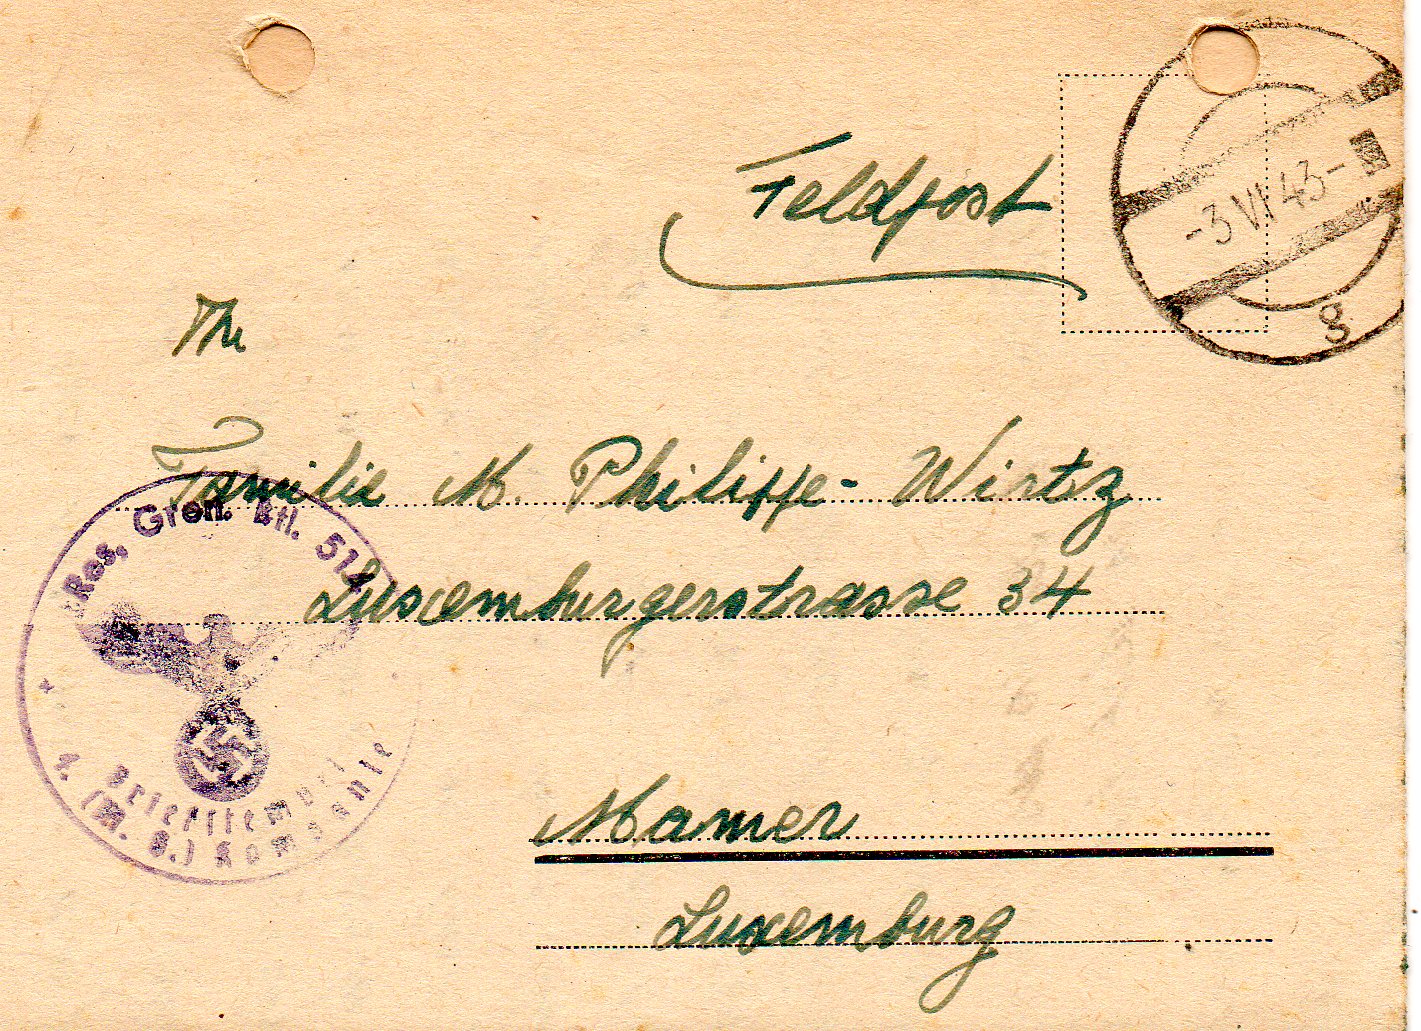 Feldpost
-3.VI.43-
g
An
Familie M. Philippe-Wirtz
Res. Gren. Btl. 514
Luxemburgerstrasse 34
Briefstempel
4. (M. G.) Kompanie
Mamer
Luxemburg